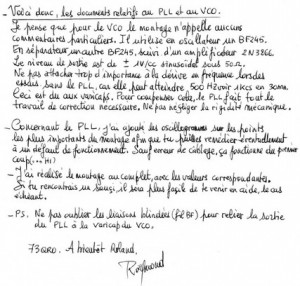 - Voilà donc, les documents relatifs au PLL et au VCO.
Je pense que pour le VCO le montage n'appelle aucuns
commentaires particuliers. Il utilise en oscillateur un BF245.
En séparateur un autre BF245, suivi d'un amplificateur 2N3866.
Le niveau de sortie est de ± 1V/cc sinusoïdal sous 50Ω.
Ne pas attacher trop d'importance à la dérive en fréquence lors des
essais sans le PLL, car elle peut atteindre 500 Hz voir 1Kcs en 30mn.
Ceci est dû aux varicaps. Pour compenser cela, le PLL fait tout le
travail de correction nécessaire. Ne pas négliger la rigidité mécanique.
- Concernant le PLL, j'ai ajouté les oscillogrammes sur les points
les plus importants du montage afin que tu puisses remédier éventuellement
à un défaut de fonctionnement. Sauf erreur de câblage, ça fonctionne du premier
coup... Hi)
- J'ai réalisé le montage au complet, avec les valeurs correspondantes.
Si tu rencontrais un souci, il sera plus facile de te venir en aide, le cas
échéant.
- PS. Ne pas oublier les liaisons blindées pour relier la sortie
du PLL à la varicap du VCO.
73 QRO. A bientôt Roland.
Raymond